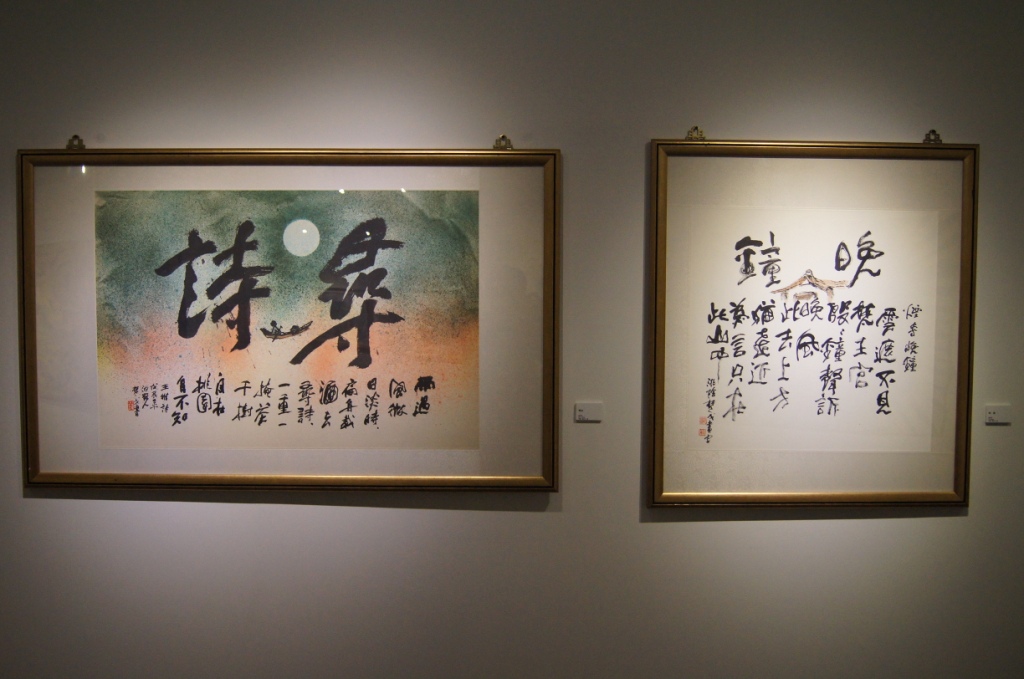 尋詩
雨過
風微
日淡時
扁舟載
酒去
尋詩
一重一
掩花
千樹
身在
桃園
自不知
晚鐘
煙寺晚鐘
雲遮不見
梵王宮
殷殷鐘聲訴
晚風
此去上方
猶遠近
為言只在
此山中